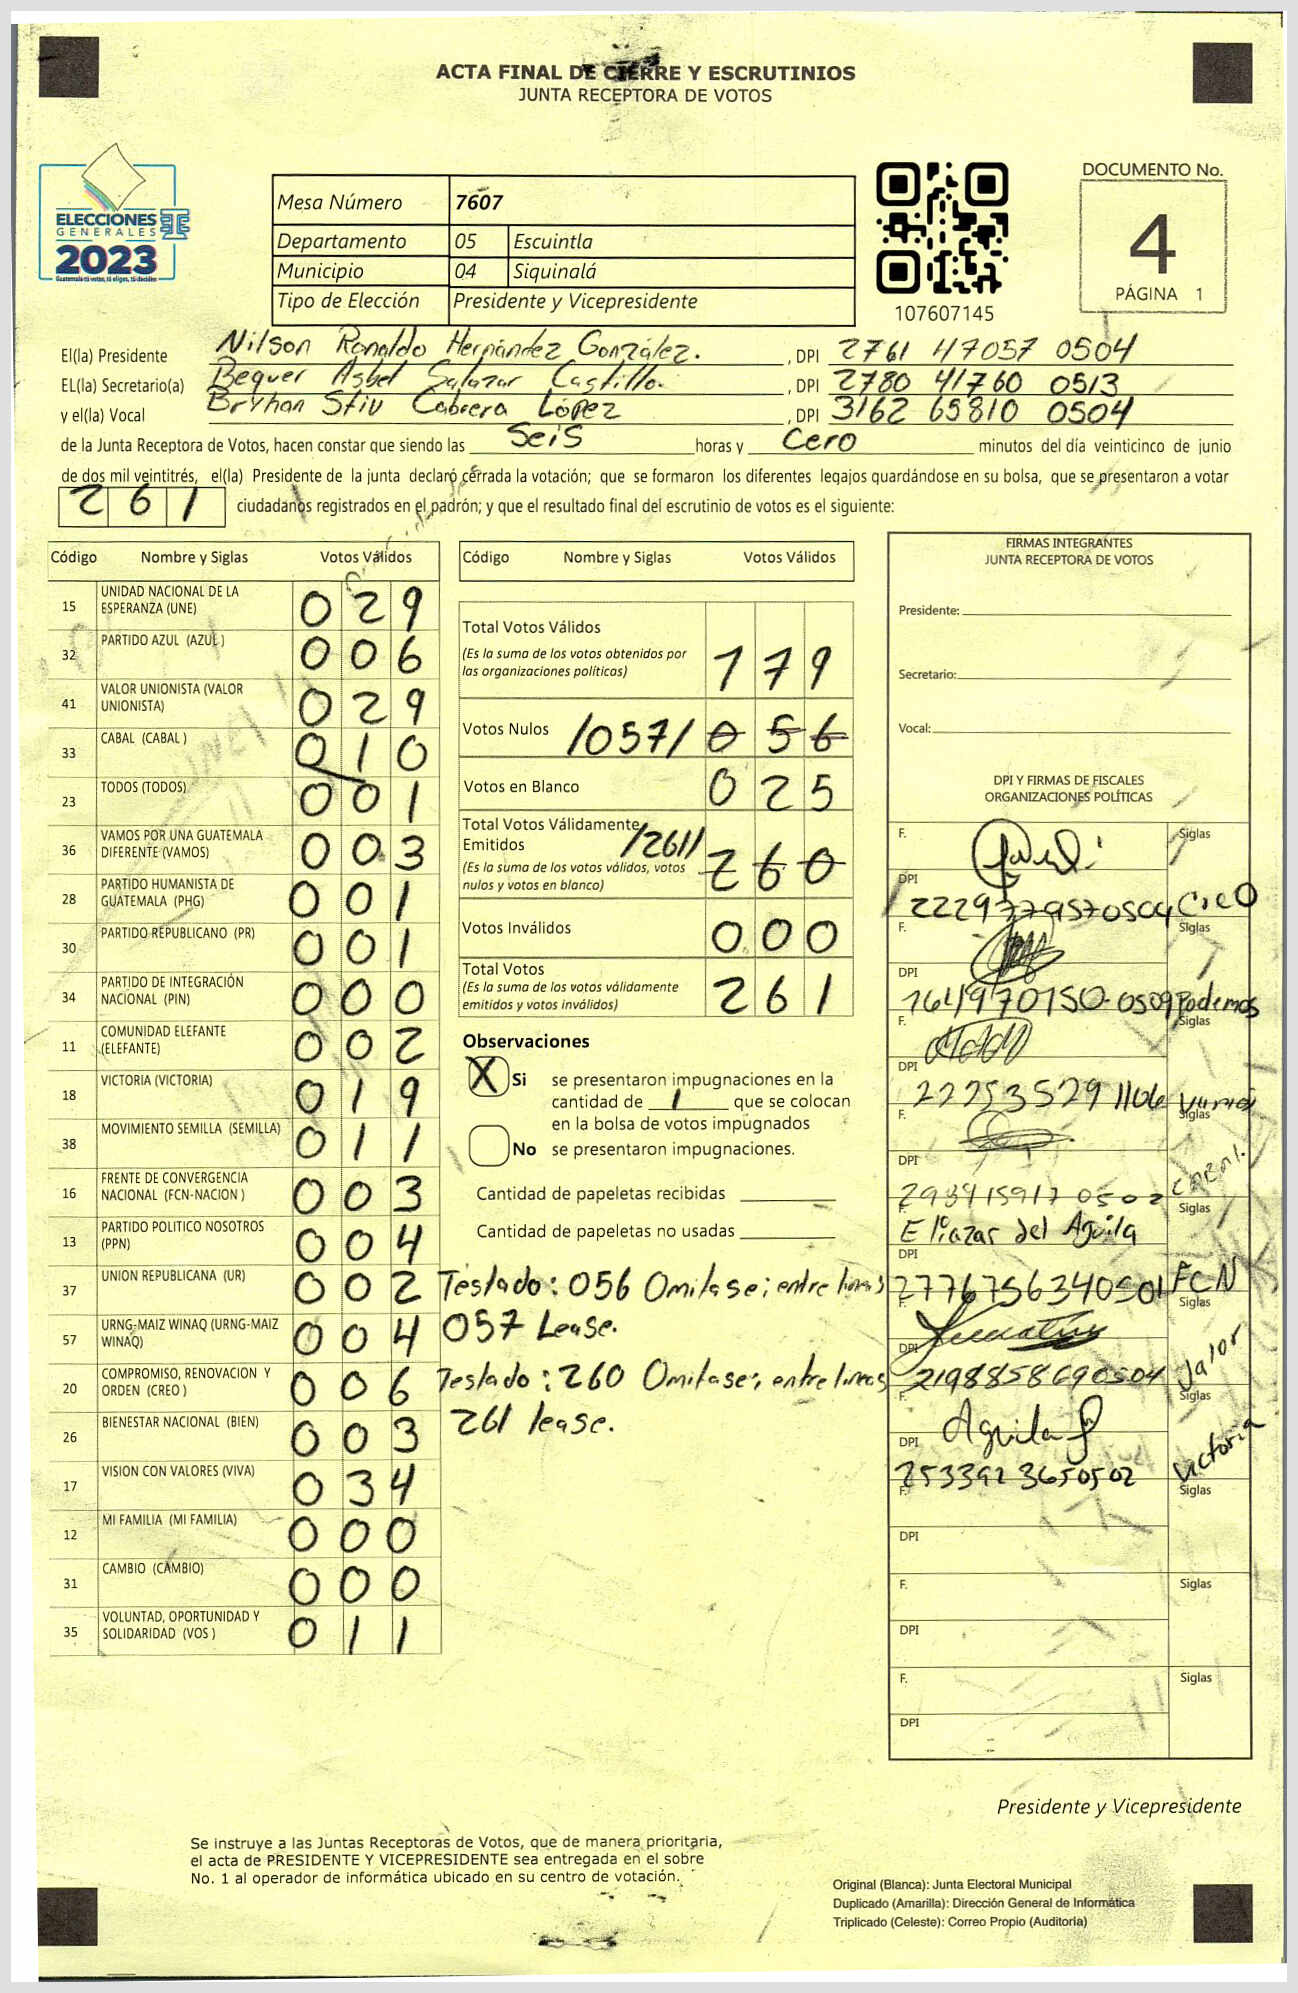 ACTA FINAL DE CIERRE Y ESCRUTINIOS
JUNTA RECEPTORA DE VOTOS
ELECCIONES
GENERALES
2023
Mesa Número 7607
Departamento 05 Escuintla
Municipio 04 Siquinalá
Tipo de Elección Presidente y Vicepresidente
107607145
DOCUMENTO No.
4
PÁGINA 1
El(la) Presidente Nilson Ronaldo Hernández González. , DPI 2761 47057 0504
EL(la) Secretario(a) Bequer Asbel Salazar Castillo. , DPI 2780 41760 0513
y el(la) Vocal Bryhan Stiv Cabrera López , DPI 3162 65810 0504
de la Junta Receptora de Votos, hacen constar que siendo las Seis horas y Cero minutos del día veinticinco de junio
de dos mil veintitrés, el(la) Presidente de la junta declaró cerrada la votación; que se formaron los diferentes legajos guardándose en su bolsa, que se presentaron a votar
261 ciudadanos registrados en el padrón; y que el resultado final del escrutinio de votos es el siguiente:
Código Nombre y Siglas Votos Válidos
15 UNIDAD NACIONAL DE LA ESPERANZA (UNE) 029
32 PARTIDO AZUL (AZUL ) 006
41 VALOR UNIONISTA (VALOR UNIONISTA) 029
33 CABAL (CABAL ) 010
23 TODOS (TODOS) 001
36 VAMOS POR UNA GUATEMALA DIFERENTE (VAMOS) 003
28 PARTIDO HUMANISTA DE GUATEMALA (PHG) 001
30 PARTIDO REPUBLICANO (PR) 001
34 PARTIDO DE INTEGRACIÓN NACIONAL (PIN) 000
11 COMUNIDAD ELEFANTE (ELEFANTE) 002
18 VICTORIA (VICTORIA) 019
38 MOVIMIENTO SEMILLA (SEMILLA) 011
16 FRENTE DE CONVERGENCIA NACIONAL (FCN-NACION ) 003
13 PARTIDO POLITICO NOSOTROS (PPN) 004
37 UNION REPUBLICANA (UR) 002
57 URNG-MAIZ WINAQ (URNG-MAIZ WINAQ) 004
20 COMPROMISO, RENOVACION Y ORDEN (CREO ) 006
26 BIENESTAR NACIONAL (BIEN) 003
17 VISION CON VALORES (VIVA) 034
12 MI FAMILIA (MI FAMILIA) 000
31 CAMBIO (CAMBIO) 000
35 VOLUNTAD, OPORTUNIDAD Y SOLIDARIDAD (VOS ) 011
Código Nombre y Siglas Votos Válidos
Total Votos Válidos 179
(Es la suma de los votos obtenidos por
las organizaciones políticas)
Votos Nulos /057/ 056
Votos en Blanco 025
Total Votos Válidamente
Emitidos /261/ 260
(Es la suma de los votos válidos, votos
nulos y votos en blanco)
Votos Inválidos 000
Total Votos 261
(Es la suma de los votos válidamente
emitidos y votos inválidos)
Observaciones
X Si se presentaron impugnaciones en la
cantidad de 1 que se colocan
en la bolsa de votos impugnados
No se presentaron impugnaciones.
Cantidad de papeletas recibidas
Cantidad de papeletas no usadas
Testado: 056 Omitase; entre lineas
057 Lease.
Testado: 260 Omitase; entre lineas
261 lease.
FIRMAS INTEGRANTES
JUNTA RECEPTORA DE VOTOS
Presidente:
Secretario:
Vocal:
DPI Y FIRMAS DE FISCALES
ORGANIZACIONES POLÍTICAS
F. Siglas
DPI 2229779570504 CREO
F. Siglas
DPI 1641970150-0509 Podemos
F. Siglas
DPI 22253529 1106
F. Siglas
DPI 293415917 0502 CABAL
F. Eliazar del Aguila Siglas
DPI 2776756340501 FCN
F. Siglas
DPI 2198858690504 Valor
F. Aguila Siglas
DPI 2533923650502 Victoria
F. Siglas
DPI
F. Siglas
DPI
F. Siglas
DPI
Presidente y Vicepresidente
Se instruye a las Juntas Receptoras de Votos, que de manera prioritaria,
el acta de PRESIDENTE Y VICEPRESIDENTE sea entregada en el sobre
No. 1 al operador de informática ubicado en su centro de votación.
Original (Blanca): Junta Electoral Municipal
Duplicado (Amarilla): Dirección General de Informática
Triplicado (Celeste): Correo Propio (Auditoría)